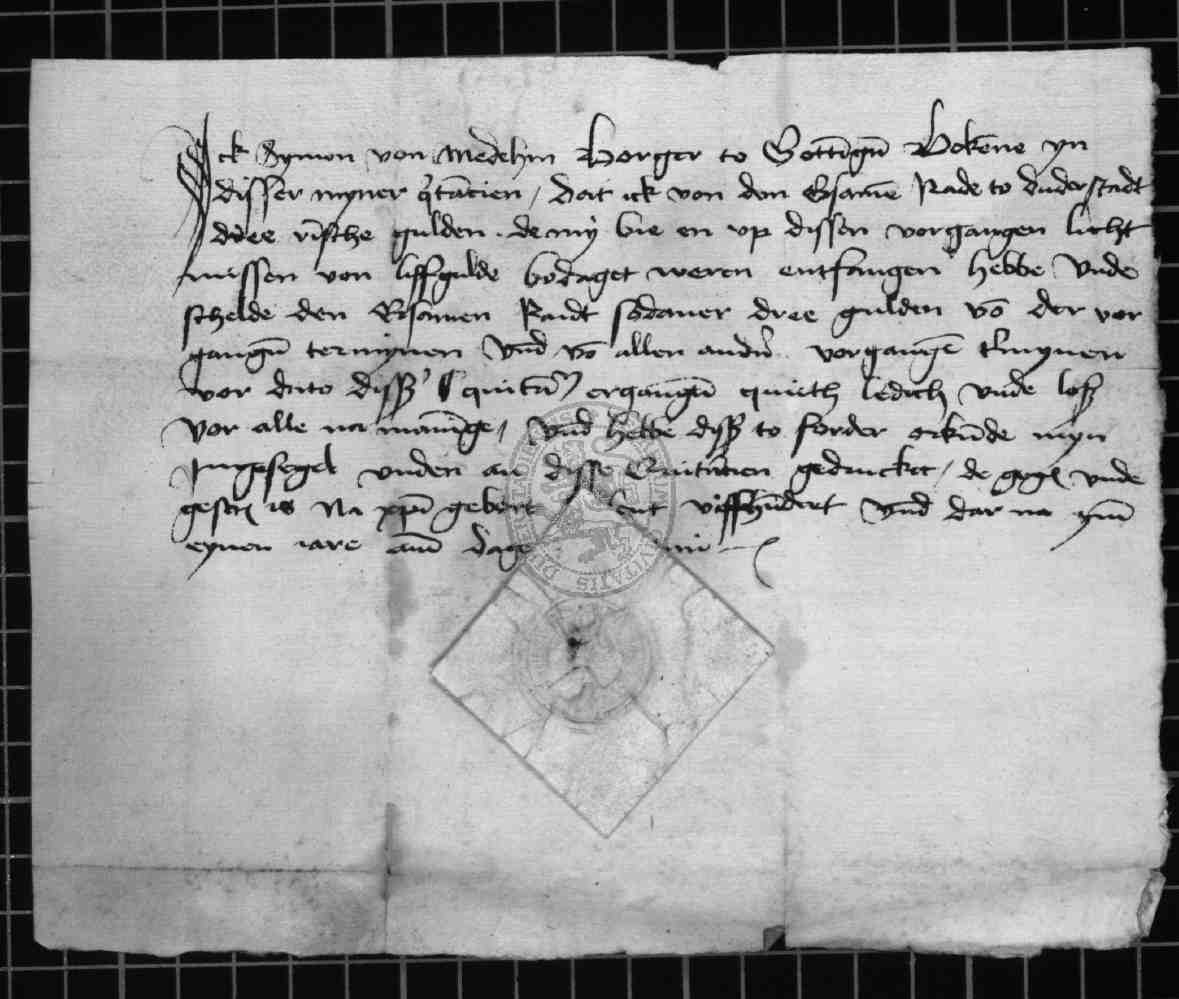 Ick Symon von Medehm Borger to Gottīgn̄ Bekēne yn
disser myner q̄tācien / dat ick von dem Ersamē Rade to duderstadt
dree rīsche gulden . de my bie en vp dissen vorgangen licht
missen von liffgulde bedaget weren entfangen hebbe Vnde
schelde den Ersamen Raidt sodaner dree gulden vō der vor
gangn̄ termynen Vnd vō allen andn̄ vorgangē tmynen
vor dato diss quitan ergangn̄ quith ledich vnde loß
Vor alle na manīge / Vnd hebbe diss to forder orkūde myn
Ingesegel vnden an disse Quitācien gedrucket / de geg vnde
gescr is Na xpī gebort vīffhūdert Vnd dar na ym
eynen iare am dage